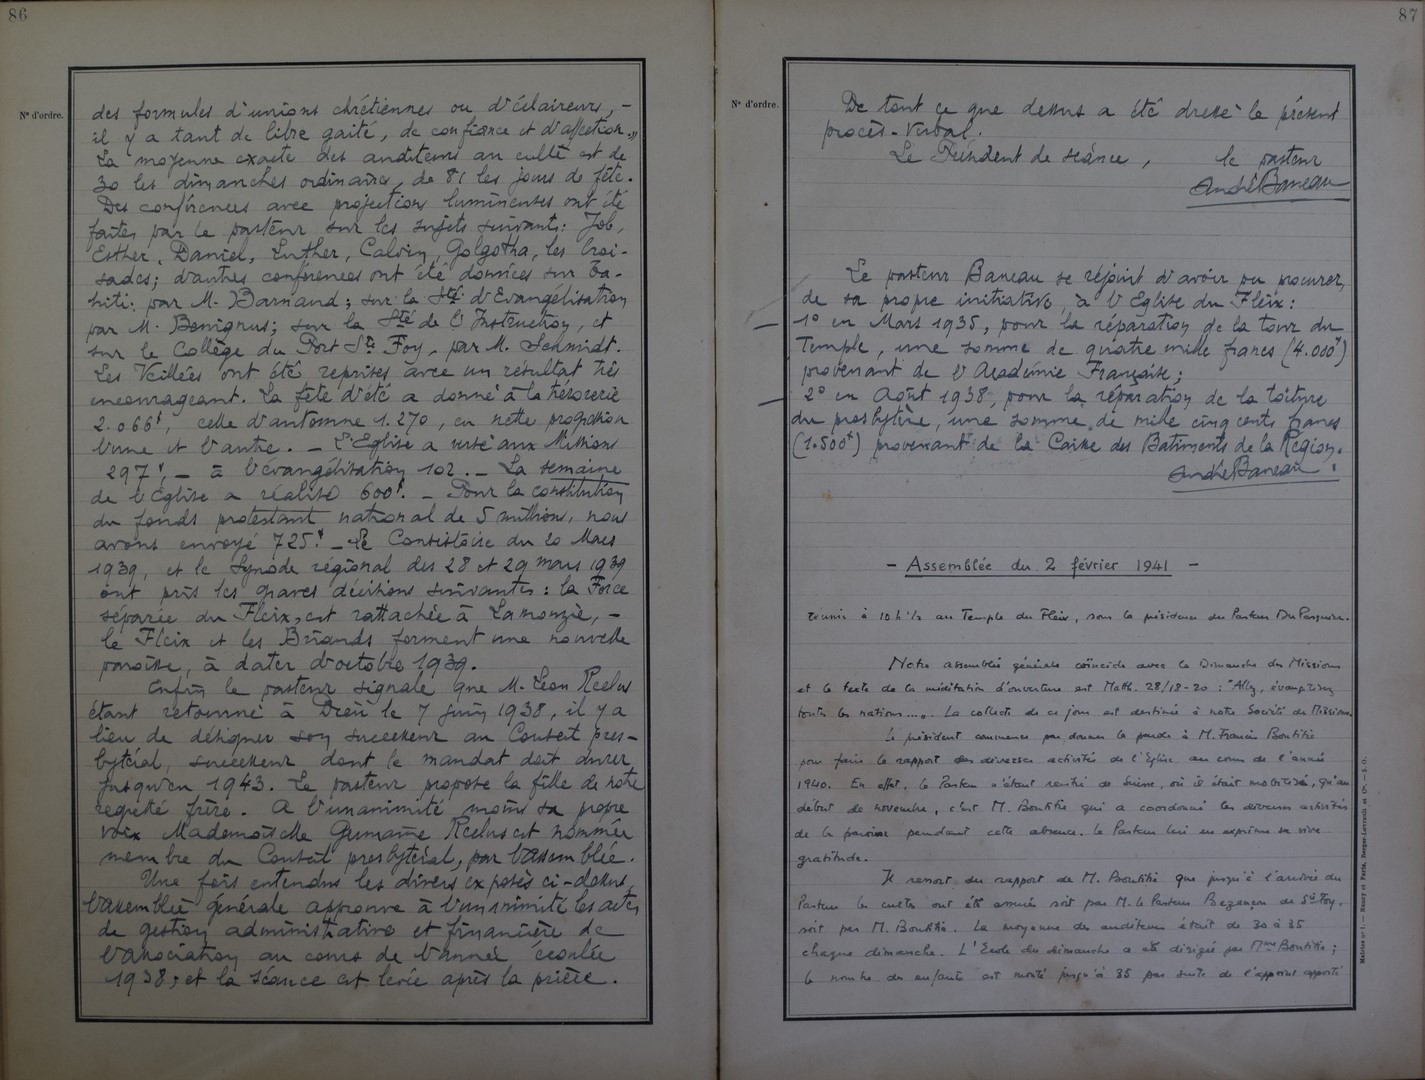 86
N° d'ordre.
des formules d'unions chrétiennes ou d'éclaireurs, -
il y a tant de libre gaité, de confiance et d'affection."
La moyenne exacte des auditeurs au culte est de
30 les dimanches ordinaires, de 81 les jours de fête.
Des conférences avec projections lumineuses ont été
faites par le pasteur sur les sujets suivants: Job,
Esther, Daniel, Luther, Calvin, Golgotha, les Croi-
sades; d'autres conférences ont été données sur Ta-
hiti: par M. Barnaud; sur la Sté d'Evangélisation
par M. Benignus; sur la Sté de l'Instruction, et
sur le Collège du Port Ste Foy, par M. Schmidt.
Les Veillées ont été reprises avec un résultat très
encourageant. La fête d'été a donné à la trésorerie
2.066f, celle d'automne 1.270, en nette progression
l'une et l'autre. - L'Eglise a versé aux Missions
297f, - à l'évangélisation 102. - La semaine
de l'Eglise a réalisé 600f. - Pour la constitution
du fonds protestant national de 5 millions, nous
avons envoyé 725f. - Le Consistoire du 20 Mars
1939, et le Synode régional des 28 et 29 mars 1939
ont pris les graves décisions suivantes: la Force
séparée du Fleix, est rattachée à Lamonzie, -
le Fleix et les Briands forment une nouvelle
paroisse, à dater d'octobre 1939.
Enfin le pasteur signale que M. Léon Reclus
étant retourné à Dieu le 7 juin 1938, il y a
lieu de désigner son successeur au Conseil pres-
bytéral, successeur dont le mandat doit durer
jusqu'en 1943. Le pasteur propose la fille de notre
regretté frère. A l'unanimité moins sa propre
voix Mademoiselle Germaine Reclus est nommée
membre du Conseil presbytéral, par l'assemblée.
Une fois entendus les divers exposés ci-dessus,
l'assemblée générale approuve à l'unanimité les actes
de gestion administrative et financière de
l'association au cours de l'année écoulée
1938; et la séance est levée après la prière.
87
N° d'ordre.
De tout ce que dessus a été dressé le présent
procès-verbal.
Le Président de séance, le pasteur
André Baneau
Le pasteur Baneau se réjouit d'avoir pu procurer,
de sa propre initiative, à l'Eglise du Fleix:
- 1° en Mars 1935, pour la réparation de la tour du
Temple, une somme de quatre mille francs (4.000f)
provenant de l'Académie Française;
- 2° en Août 1938, pour la réparation de la toiture
du presbytère, une somme de mille cinq cents francs
(1.500f) provenant de la Caisse des Batiments de la Région.
André Baneau.
- Assemblée du 2 février 1941 -
réunie à 10h 1/2 au Temple du Fleix, sous la présidence du Pasteur Du Pasquier.
Notre assemblée générale coïncide avec le Dimanche des Missions
et le texte de la méditation d'ouverture est Matth. 28/18-20 : "Allez, évangélisez
toutes les nations...". La collecte de ce jour est destinée à notre Société des Missions.
Le président commence par donner la parole à M. Francis Boutitie
pour faire le rapport des diverses activités de l'Eglise au cours de l'année
1940. En effet, le Pasteur n'étant rentré de Suisse, où il était mobilisé, qu'au
début de novembre, c'est M. Boutitie qui a coordonné les diverses activités
de la paroisse pendant cette absence. Le Pasteur lui en exprime sa vive
gratitude.
Il ressort du rapport de M. Boutitie que jusqu'à l'arrivée du
Pasteur les cultes ont été assurés soit par M. le Pasteur Bezançon de Ste Foy,
soit par M. Boutitie. La moyenne des auditeurs était de 30 à 35
chaque dimanche. L'Ecole du dimanche a été dirigée par Mme Boutitie;
le nombre des enfants est monté jusqu'à 35 par suite de l'appoint apporté
Modèle n° 1. — Nancy et Paris, Berger-Levrault et Cie. — S. O.